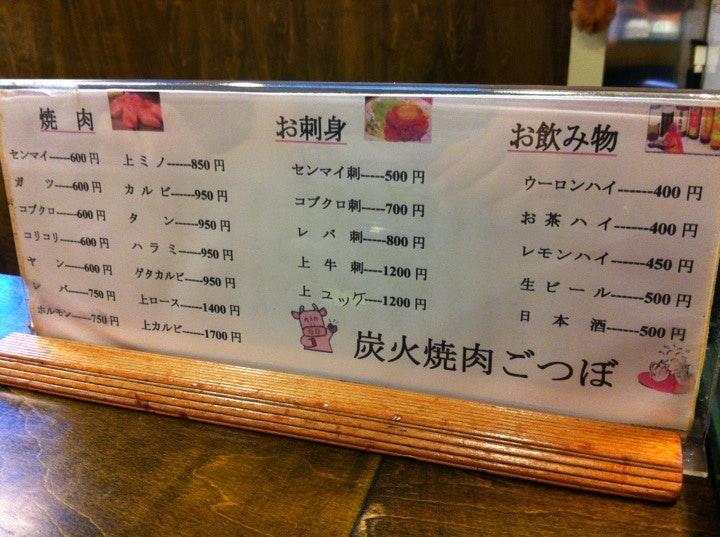 焼 肉
センマイ-----600円
ガ ツ----600円
コブクロ----600円
コリコリ----600円
ヤ ン----600円
レ バ----750円
ホルモン----750円
上ミノ------850円
カルビ-----950円
タ ン-----950円
ハラミ-----950円
ゲタカルビ--950円
上ロース-----1400円
上カルビ-----1700円
お刺身
センマイ刺-----500円
コブクロ刺-----700円
レ バ 刺-----800円
上 牛 刺----1200円
上 ユッケ----1200円
お飲み物
ウーロンハイ-------400円
お茶ハイ------400円
レモンハイ-----450円
生ビール------500円
日 本 酒------500円
炭火焼肉ごつぼ